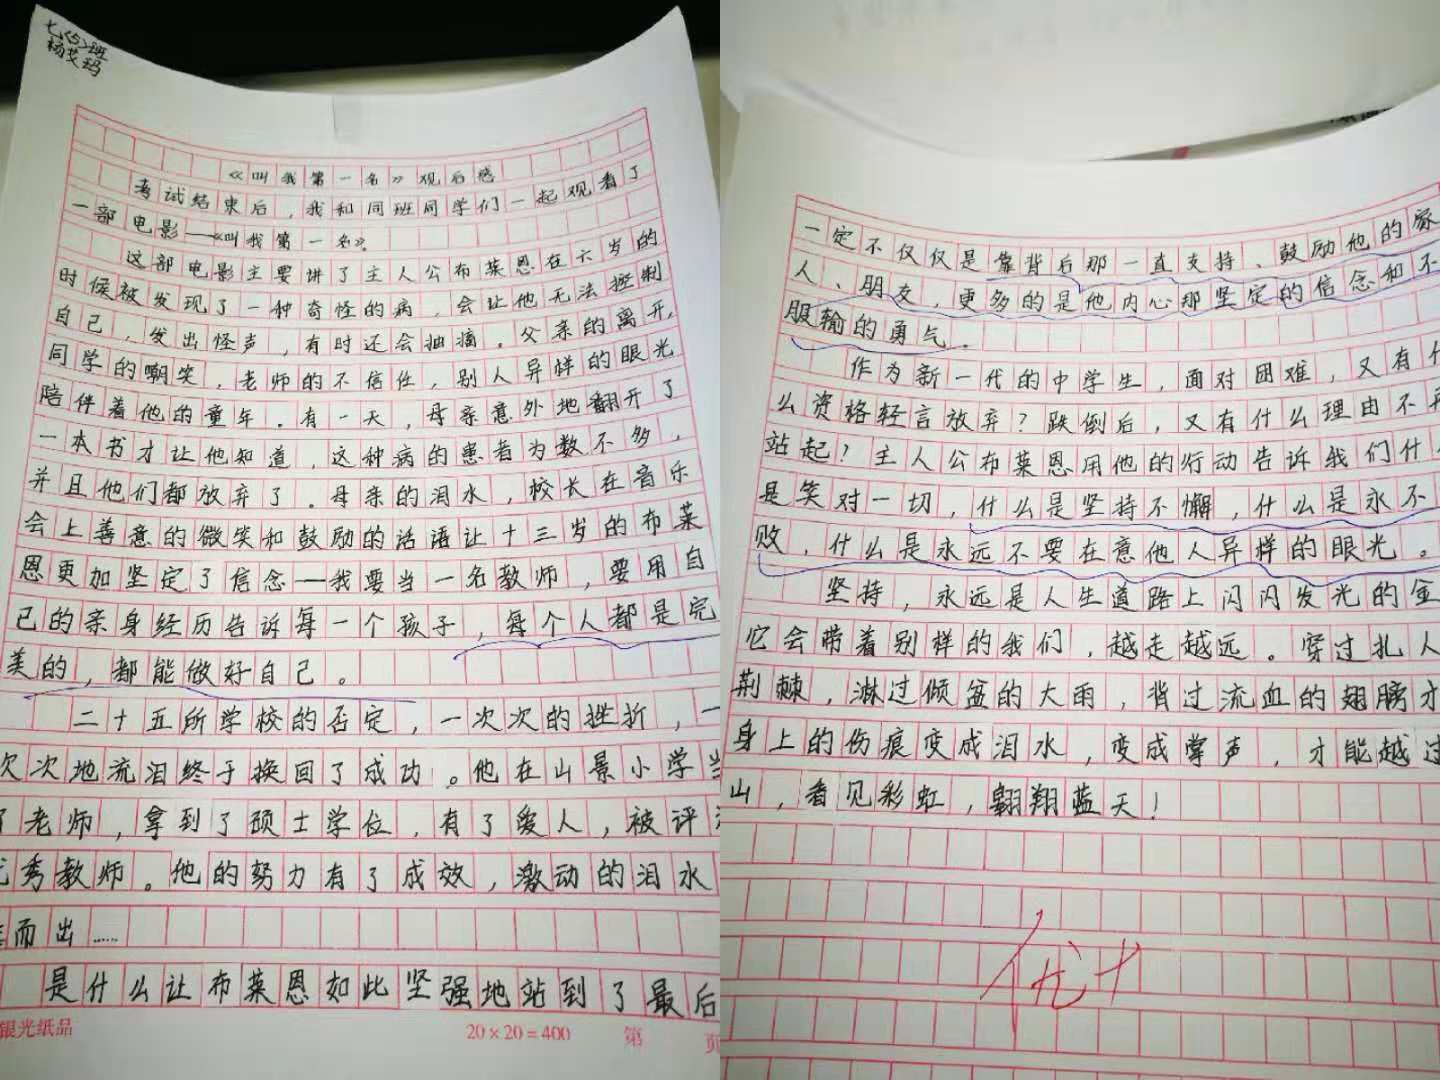 七(5)班
杨艾玛
《叫我第一名》观后感
考试结束后，我和同班同学们一起观看了
一部电影——《叫我第一名》。
这部电影主要讲了主人公布莱恩在六岁的
时候被发现了一种奇怪的病，会让他无法控制
自己，发出怪声，有时还会抽搐。父亲的离开，
同学的嘲笑，老师的不信任，别人异样的眼光
陪伴着他的童年。有一天，母亲意外地翻开了
一本书才让他知道，这种病的患者为数不多，
并且他们都放弃了。母亲的泪水，校长在音乐
会上善意的微笑和鼓励的话语让十三岁的布莱
恩更加坚定了信念—我要当一名教师，要用自
己的亲身经历告诉每一个孩子，每个人都是完
美的，都能做好自己。
二十五所学校的否定，一次次的挫折，一
次次地流泪终于换回了成功。他在山景小学当
了老师，拿到了硕士学位，有了爱人，被评
优秀教师。他的努力有了成效，激动的泪水
而出……
是什么让布莱恩如此坚强地站到了最后
银光纸品
20×20=400
第
页
一定不仅仅是靠背后那一直支持、鼓励他的家
人、朋友，更多的是他内心那坚定的信念和不
服输的勇气。
作为新一代的中学生，面对困难，又有什
么资格轻言放弃？跌倒后，又有什么理由不再
站起？主人公布莱恩用他的行动告诉我们什么
是笑对一切，什么是坚持不懈，什么是永不
败，什么是永远不要在意他人异样的眼光。
坚持，永远是人生道路上闪闪发光的金
它会带着别样的我们，越走越远。穿过扎人
荆棘，淋过倾盆的大雨，背过流血的翅膀才
身上的伤痕变成泪水，变成掌声，才能越过
山，看见彩虹，翱翔蓝天！
优+